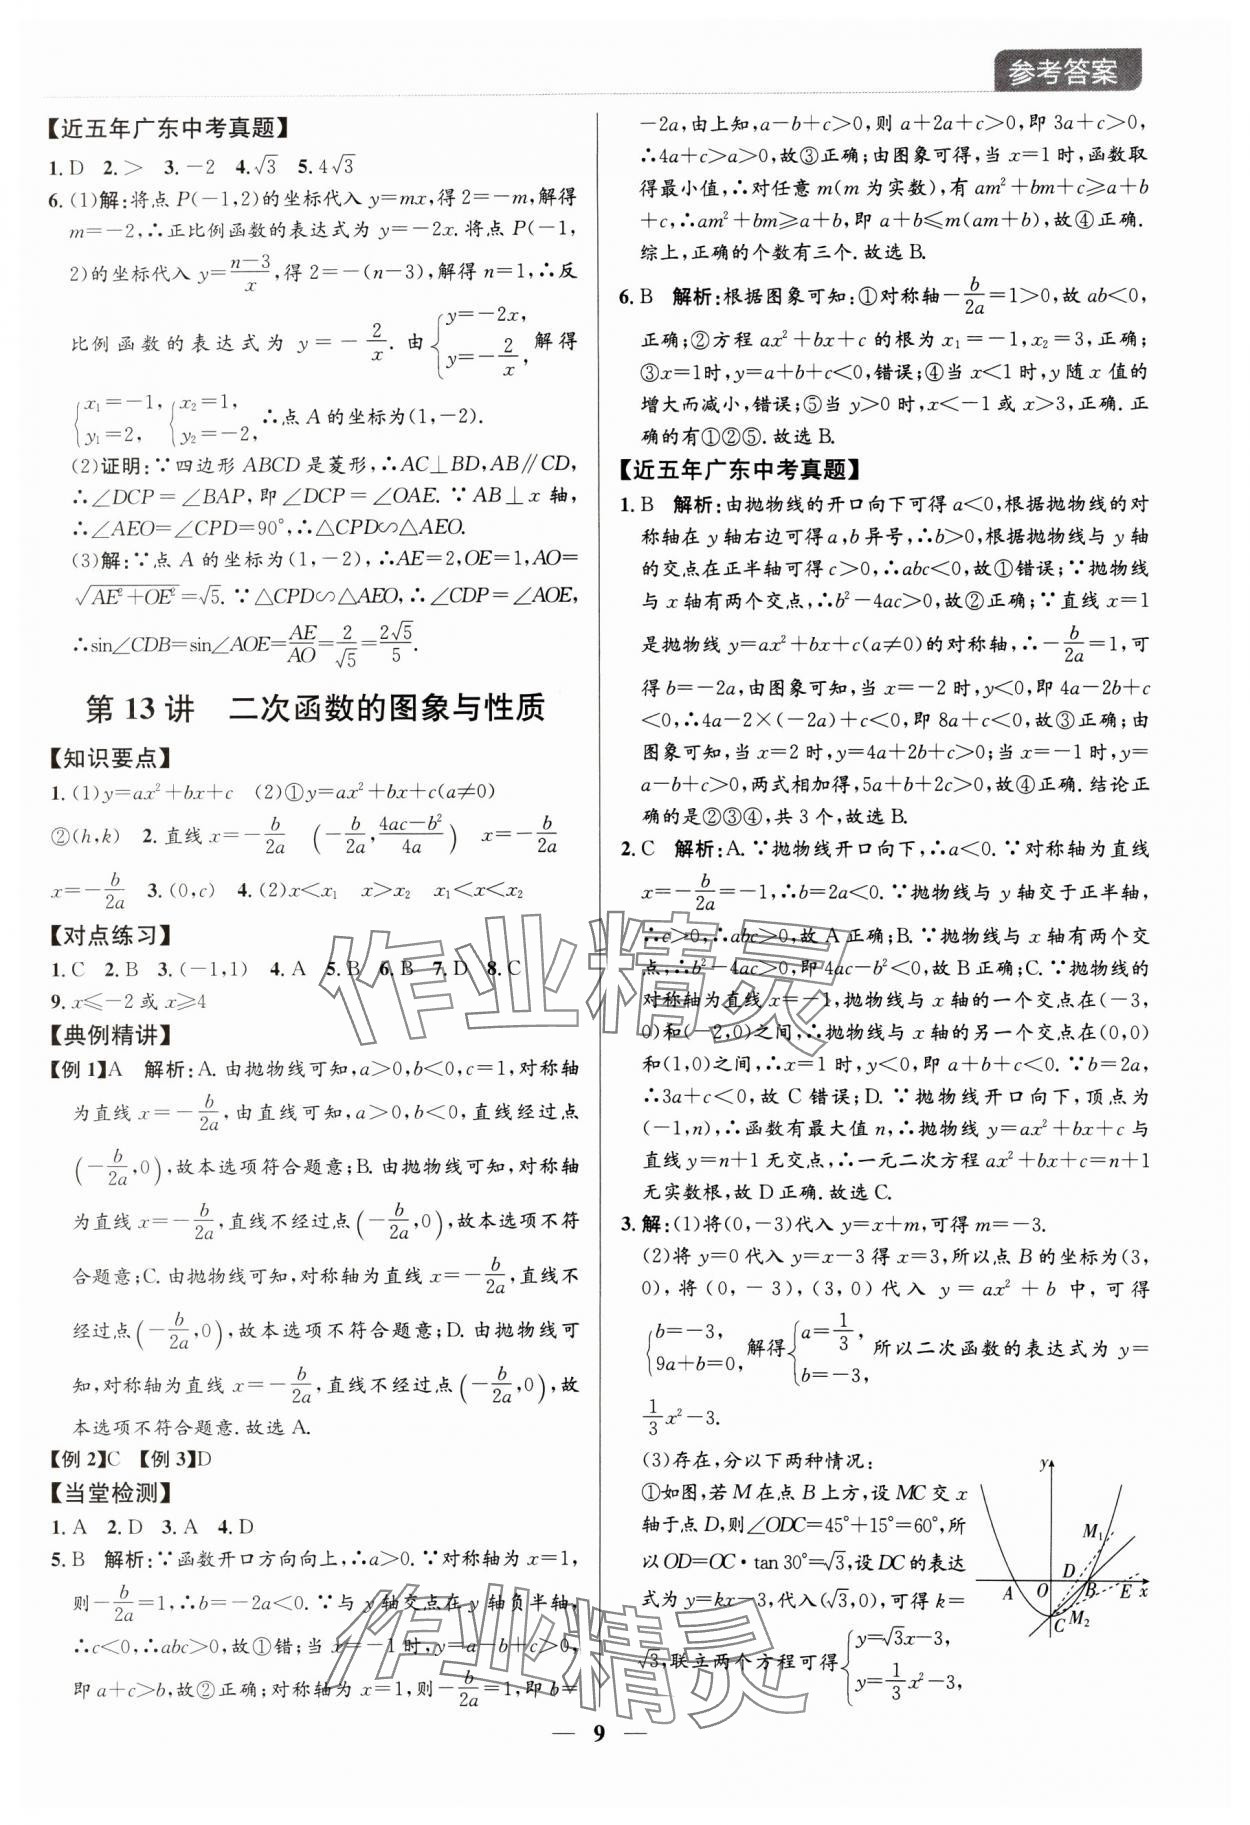 参考答案
【近五年广东中考真题】
1. D 2. > 3. -2 4. √3 5. 4√3
6. (1)解:将点 P(-1,2)的坐标代入 y=mx,得 2=-m,解得
m=-2,∴正比例函数的表达式为 y=-2x. 将点 P(-1,
2)的坐标代入 y=(n-3)/x,得 2=-(n-3),解得 n=1,∴反
比例函数的表达式为 y=-2/x. 由{y=-2x, y=-2/x, 解得
{x₁=-1, y₁=2, {x₂=1, y₂=-2, ∴点 A 的坐标为(1,-2).
(2)证明:∵四边形 ABCD 是菱形,∴AC⊥BD,AB∥CD,
∴∠DCP=∠BAP,即∠DCP=∠OAE. ∵AB⊥x 轴,
∴∠AEO=∠CPD=90°,∴△CPD∽△AEO.
(3)解:∵点 A 的坐标为(1,-2),∴AE=2,OE=1,AO=
√(AE²+OE²)=√5. ∵△CPD∽△AEO,∴∠CDP=∠AOE,
∴sin∠CDB=sin∠AOE=AE/AO=2/√5=2√5/5.
第 13 讲 二次函数的图象与性质
【知识要点】
1. (1)y=ax²+bx+c (2)①y=ax²+bx+c(a≠0)
②(h,k) 2. 直线 x=-b/2a (-b/2a,(4ac-b²)/4a) x=-b/2a
x=-b/2a 3. (0,c) 4. (2)x<x₁ x>x₂ x₁<x<x₂
【对点练习】
1. C 2. B 3. (-1,1) 4. A 5. B 6. B 7. D 8. C
9. x≤-2 或 x≥4
【典例精讲】
【例 1】A 解析:A. 由抛物线可知,a>0,b<0,c=1,对称轴
为直线 x=-b/2a,由直线可知,a>0,b<0,直线经过点
(-b/2a,0),故本选项符合题意;B. 由抛物线可知,对称轴
为直线 x=-b/2a,直线不经过点(-b/2a,0),故本选项不符
合题意;C. 由抛物线可知,对称轴为直线 x=-b/2a,直线不
经过点(-b/2a,0),故本选项不符合题意;D. 由抛物线可
知,对称轴为直线 x=-b/2a,直线不经过点(-b/2a,0),故
本选项不符合题意. 故选 A.
【例 2】C 【例 3】D
【当堂检测】
1. A 2. D 3. A 4. D
5. B 解析:∵函数开口方向向上,∴a>0. ∵对称轴为 x=1,
则-b/2a=1,∴b=-2a<0. ∵与 y 轴交点在 y 轴负半轴,
∴c<0,∴abc>0,故①错;当 x=-1 时,y=a-b+c>0,
即 a+c>b,故②正确;对称轴为 x=1,则-b/2a=1,即 b=
-2a,由上知,a-b+c>0,则 a+2a+c>0,即 3a+c>0,
∴4a+c>a>0,故③正确;由图象可得,当 x=1 时,函数取
得最小值,∴对任意 m(m 为实数),有 am²+bm+c≥a+b
+c,∴am²+bm≥a+b,即 a+b≤m(am+b),故④正确.
综上,正确的个数有三个. 故选 B.
6. B 解析:根据图象可知:①对称轴-b/2a=1>0,故 ab<0,
正确;②方程 ax²+bx+c 的根为 x₁=-1,x₂=3,正确;
③x=1时,y=a+b+c<0,错误;④当 x<1 时,y 随 x 值的
增大而减小,错误;⑤当 y>0 时,x<-1 或 x>3,正确. 正
确的有①②⑤. 故选 B.
【近五年广东中考真题】
1. B 解析:由抛物线的开口向下可得 a<0,根据抛物线的对
称轴在 y 轴右边可得 a,b 异号,∴b>0,根据抛物线与 y 轴
的交点在正半轴可得 c>0,∴abc<0,故①错误;∵抛物线
与 x 轴有两个交点,∴b²-4ac>0,故②正确;∵直线 x=1
是抛物线 y=ax²+bx+c(a≠0)的对称轴,∴-b/2a=1,可
得 b=-2a,由图象可知,当 x=-2 时,y<0,即 4a-2b+c
<0,∴4a-2×(-2a)+c<0,即 8a+c<0,故③正确;由
图象可知,当 x=2 时,y=4a+2b+c>0;当 x=-1 时,y=
a-b+c>0,两式相加得,5a+b+2c>0,故④正确. 结论正
确的是②③④,共 3 个,故选 B.
2. C 解析:A. ∵抛物线开口向下,∴a<0. ∵对称轴为直线
x=-b/2a=-1,∴b=2a<0. ∵抛物线与 y 轴交于正半轴,
∴c>0,∴abc>0,故 A 正确;B. ∵抛物线与 x 轴有两个交
点,∴b²-4ac>0,即 4ac-b²<0,故 B 正确;C. ∵抛物线
的对称轴为直线 x=-1,抛物线与 x 轴的一个交点在(-3,
0)和(-2,0)之间,∴抛物线与 x 轴的另一个交点在(0,0)
和(1,0)之间,∴x=1 时,y<0,即 a+b+c<0. ∵b=2a,
∴3a+c<0,故 C 错误;D. ∵抛物线开口向下,顶点为
(-1,n),∴函数有最大值 n,∴抛物线 y=ax²+bx+c 与
直线 y=n+1 无交点,∴一元二次方程 ax²+bx+c=n+1
无实数根,故 D 正确. 故选 C.
3. 解:(1)将(0,-3)代入 y=x+m,可得 m=-3.
(2)将 y=0 代入 y=x-3 得 x=3,所以点 B 的坐标为(3,
0),将(0,-3),(3,0)代入 y=ax²+b 中,可得
{b=-3, 9a+b=0, 解得{a=1/3, b=-3, 所以二次函数的表达式为 y=
1/3x²-3.
(3)存在,分以下两种情况:
①如图,若 M 在点 B 上方,设 MC 交 x
轴于点 D,则∠ODC=45°+15°=60°,所
以 OD=OC·tan 30°=√3,设 DC 的表达
式为 y=kx-3,代入(√3,0)可得 k=
√3,联立两个方程可得{y=√3x-3, y=1/3x²-3,
y M₁ D A O B E x C M₂
— 9 —
作业精灵
作业精灵